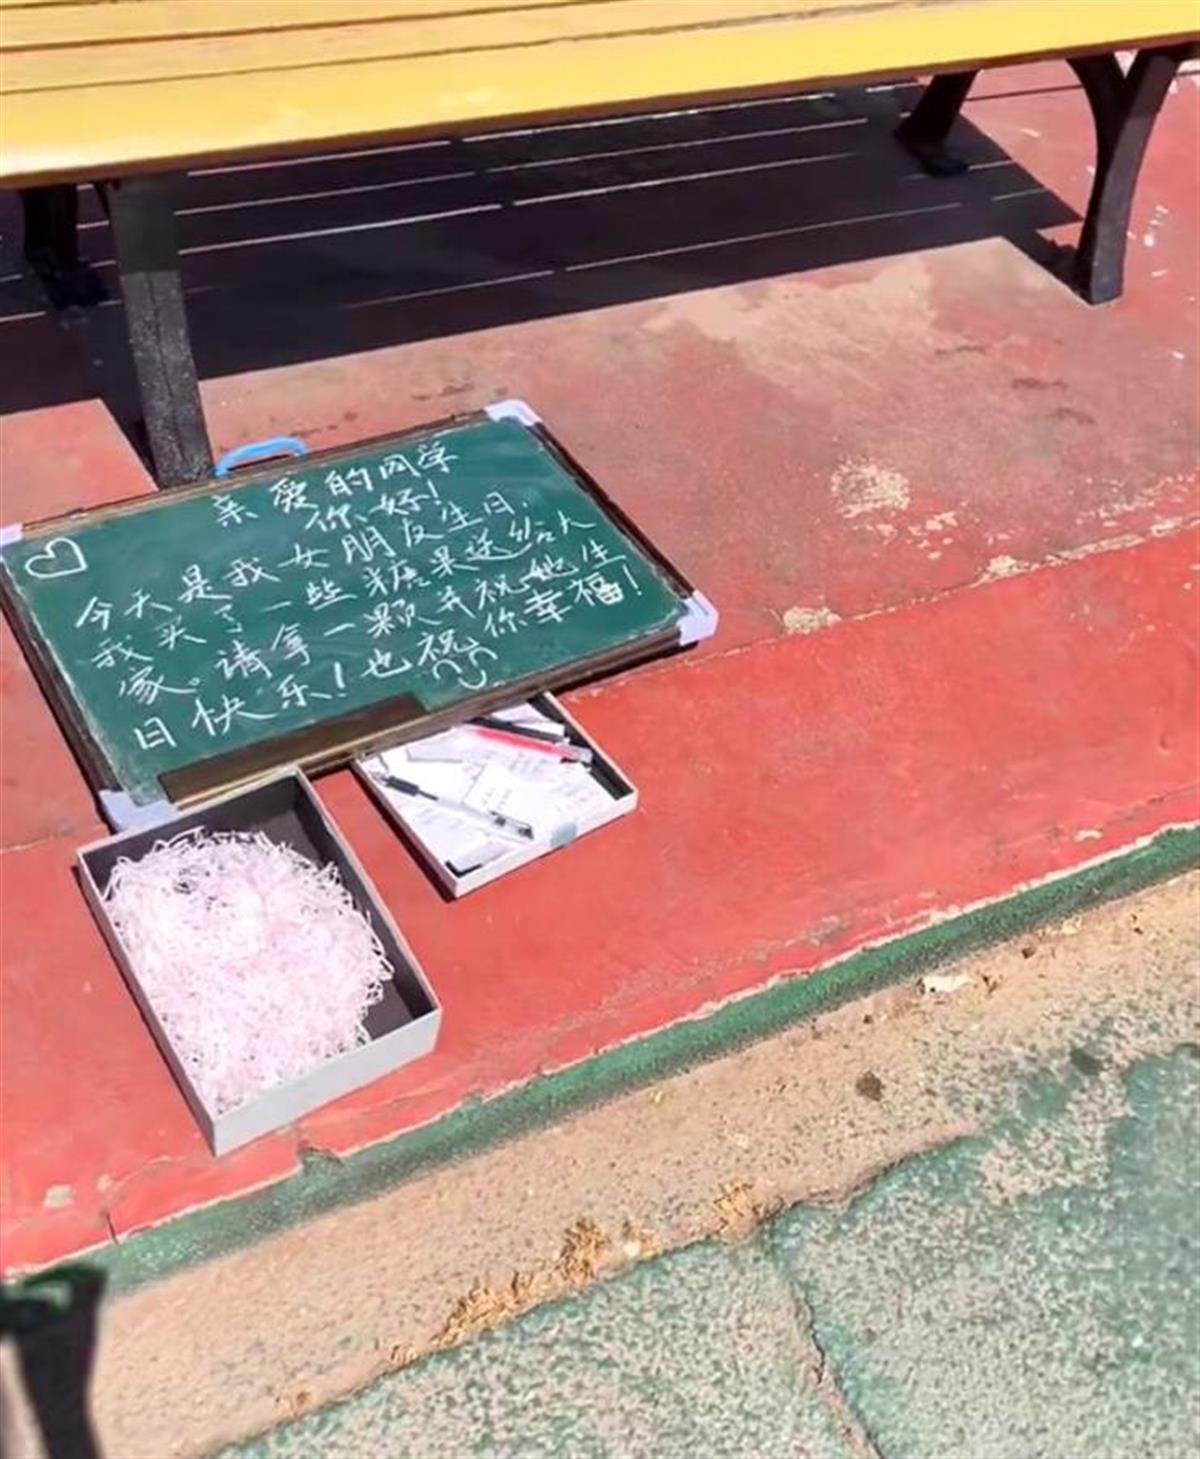 亲爱的同学
你好!
今天是我女朋友生日,
我买了一些糖果送给大
家。请拿一颗并祝她生
日快乐!也祝你幸福!